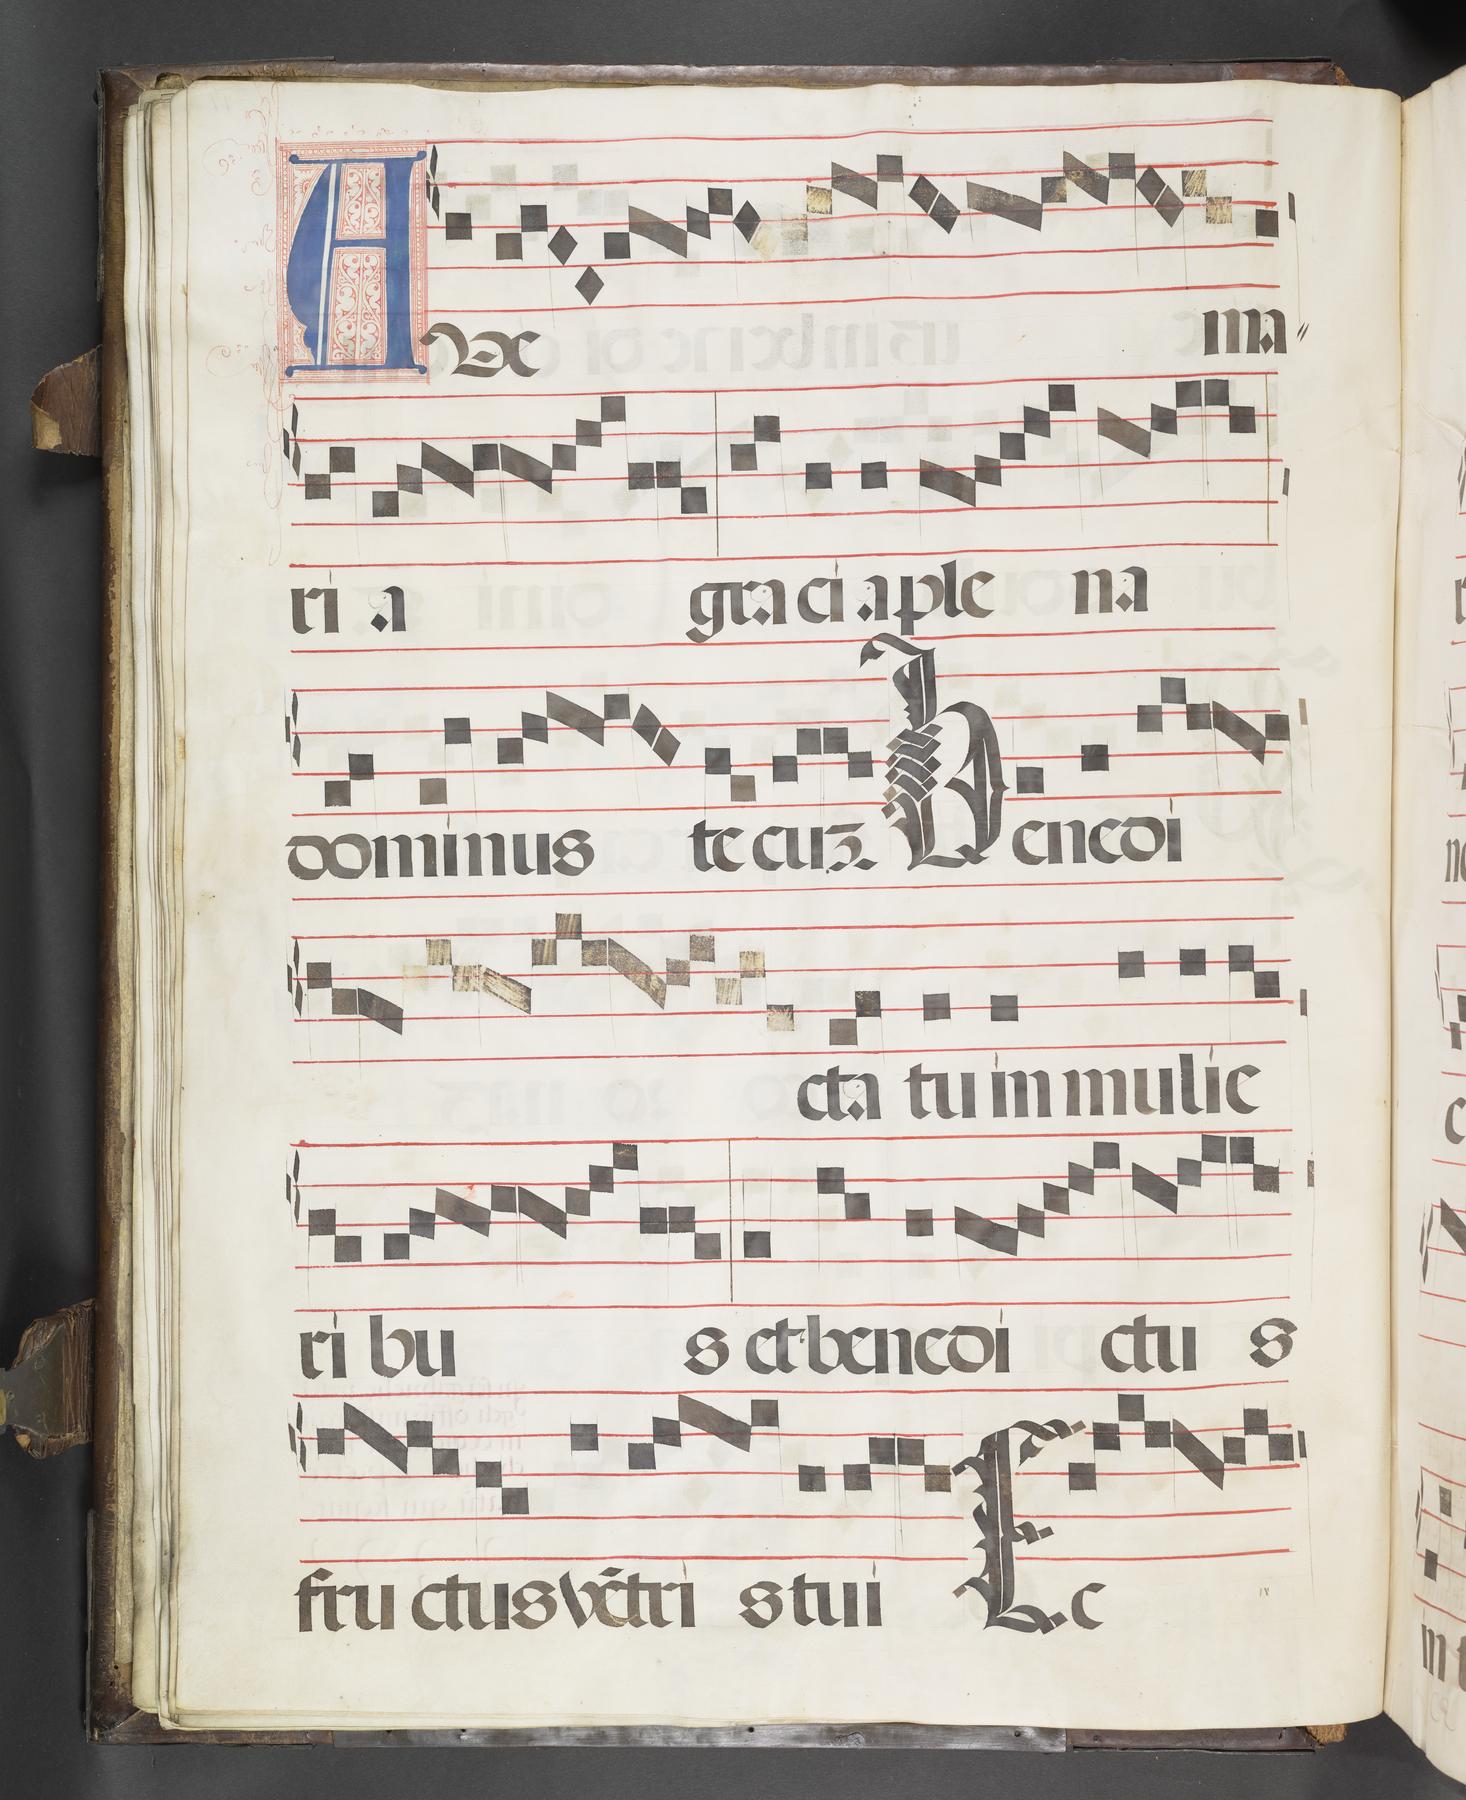 AVe ma
ri a gra ci a ple na
dominus te cuȝ Benedi
cta tu in mulie
ri bu s et benedi ctu s
fru ctus vētri s tui Ec